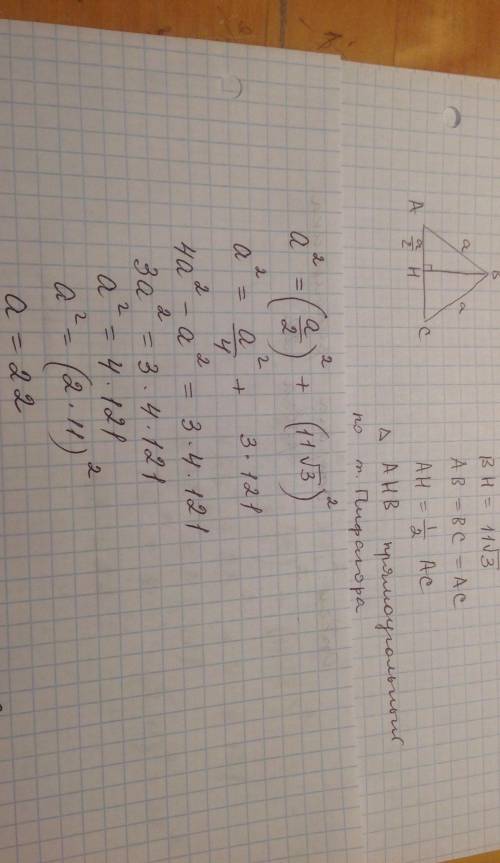 B
a
a
A
a/2
H
C
BH = 11√3
AB = BC = AC
AH = 1/2 AC
△ AHB прямоугольный
по т. Пифагора
a² = (a/2)² + (11√3)²
a² = a²/4 + 3·121
4a² - a² = 3·4·121
3a² = 3·4·121
a² = 4·121
a² = (2·11)²
a = 22